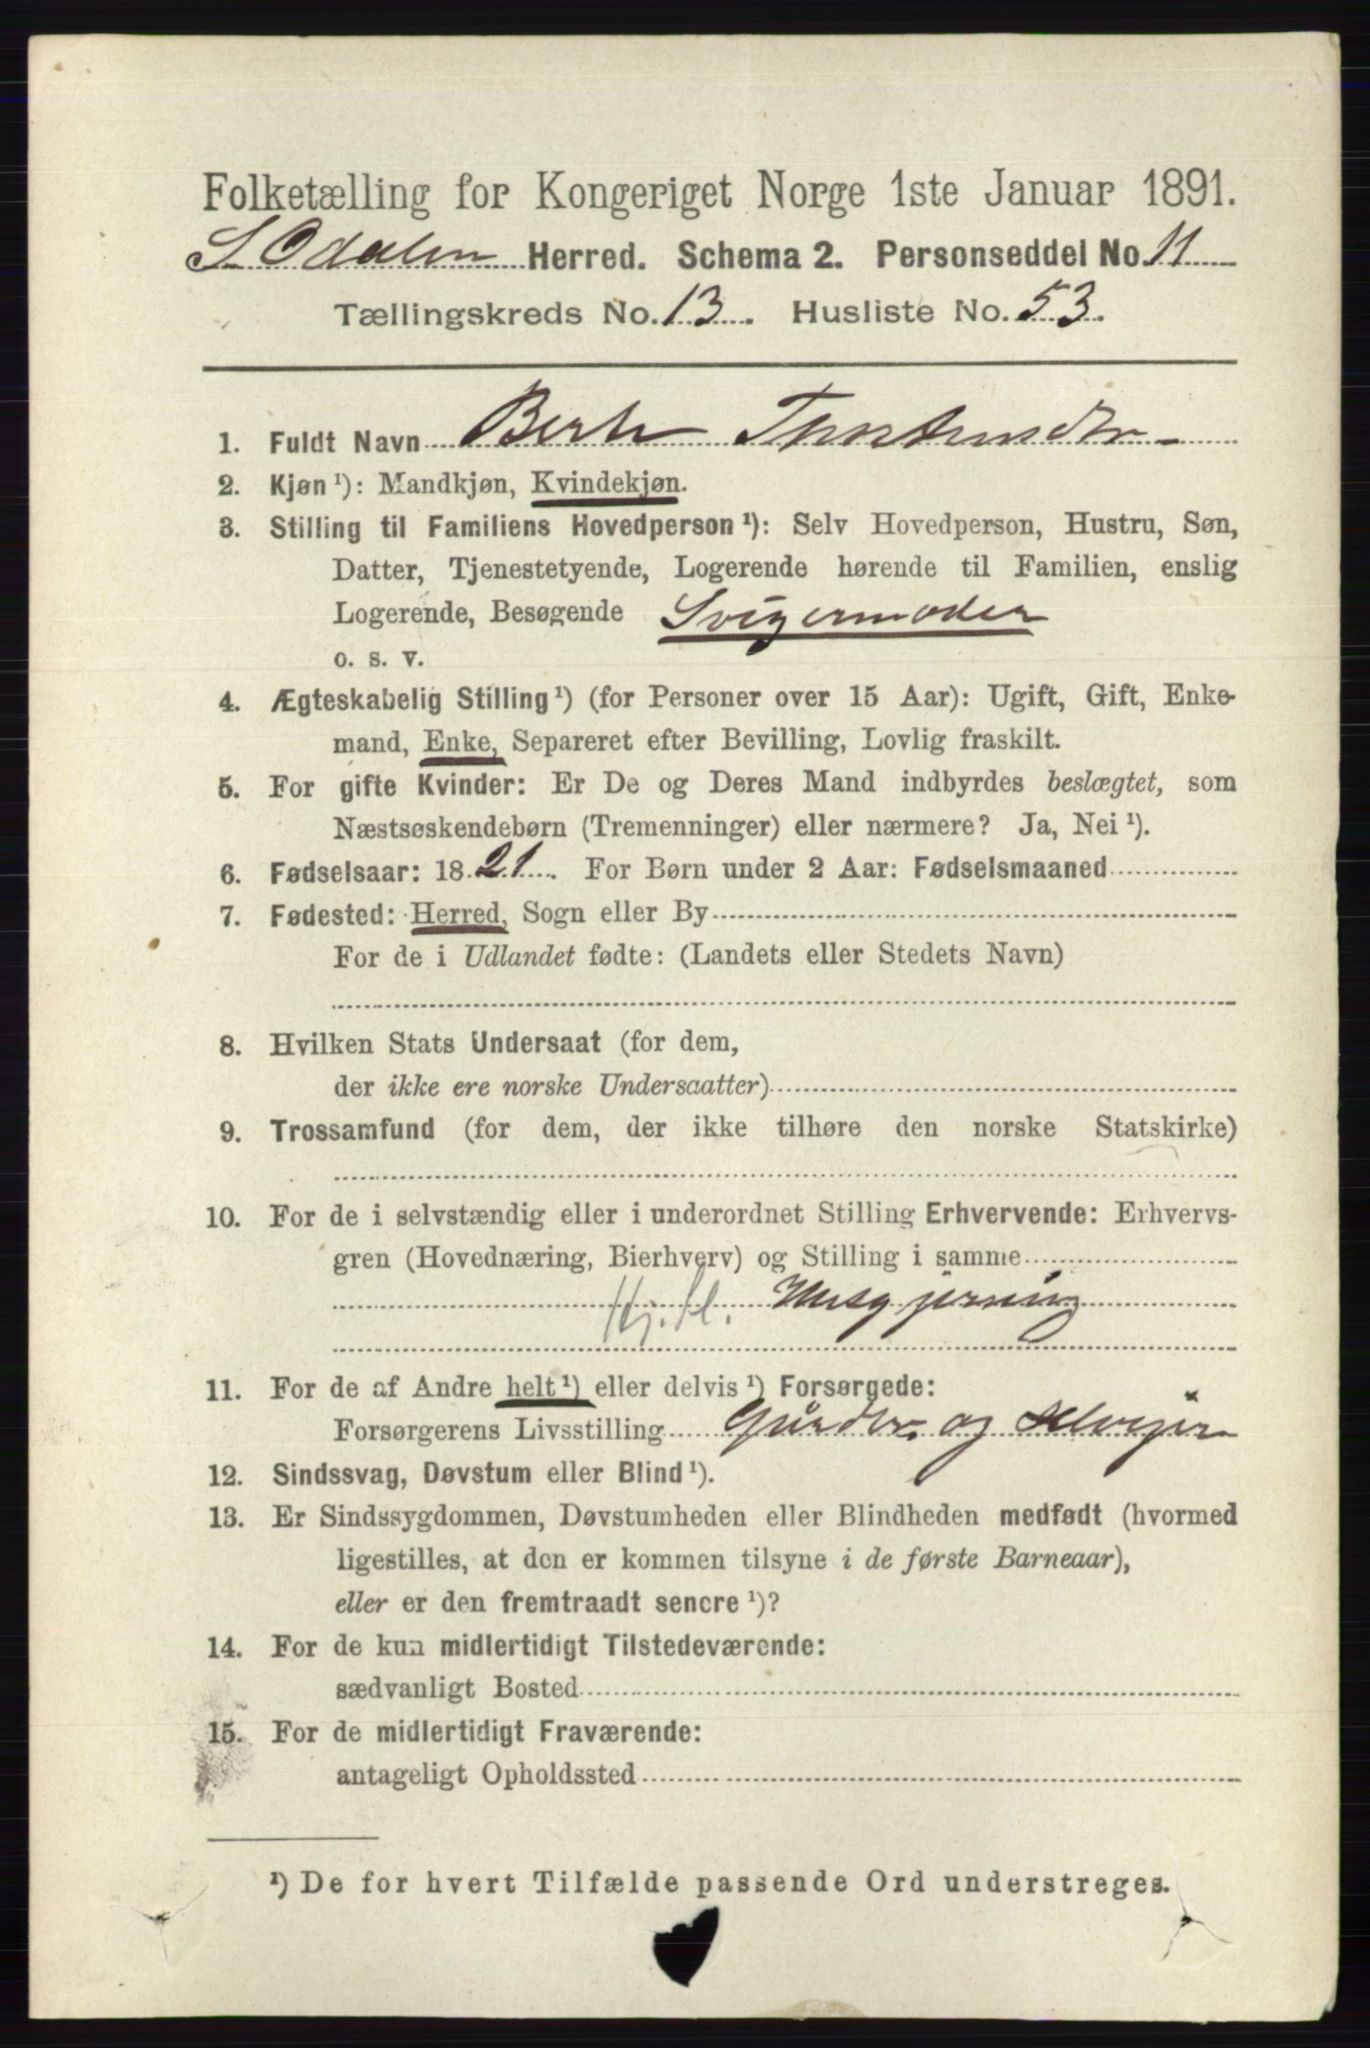 Folketælling for Kongeriget Norge 1ste Januar 1891.
S. Odalen Herred. Schema 2. Personseddel No. 11
Tællingskreds No. 13. Husliste No. 53.
1. Fuldt Navn Berte
2. Kjøn ¹): Mandkjøn, Kvindekjøn.
3. Stilling til Familiens Hovedperson ¹): Selv Hovedperson, Hustru, Søn,
Datter, Tjenestetyende, Logerende hørende til Familien, enslig
Logerende, Besøgende Svigermoder
o. s. v.
4. Ægteskabelig Stilling ¹) (for Personer over 15 Aar): Ugift, Gift, Enke-
mand, Enke, Separeret efter Bevilling, Lovlig fraskilt.
5. For gifte Kvinder: Er De og Deres Mand indbyrdes beslægtet, som
Næstsøskendebørn (Tremenninger) eller nærmere? Ja, Nei ¹).
6. Fødselsaar: 1821. For Børn under 2 Aar: Fødselsmaaned
7. Fødested: Herred, Sogn eller By
For de i Udlandet fødte: (Landets eller Stedets Navn)
8. Hvilken Stats Undersaat (for dem,
der ikke ere norske Undersaatter)
9. Trossamfund (for dem, der ikke tilhøre den norske Statskirke)
10. For de i selvstændig eller i underordnet Stilling Erhvervende: Erhvervs-
gren (Hovednæring, Bierhverv) og Stilling i samme
Husgjerning
11. For de af Andre helt ¹) eller delvis ¹) Forsørgede:
Forsørgerens Livsstilling Gårdbr. og Selveier
12. Sindssvag, Døvstum eller Blind ¹).
13. Er Sindssygdommen, Døvstumheden eller Blindheden medfødt (hvormed
ligestilles, at den er kommen tilsyne i de første Barneaar),
eller er den fremtraadt senere ¹)?
14. For de kun midlertidigt Tilstedeværende:
sædvanligt Bosted
15. For de midlertidigt Fraværende:
antageligt Opholdssted
¹) De for hvert Tilfælde passende Ord understreges.